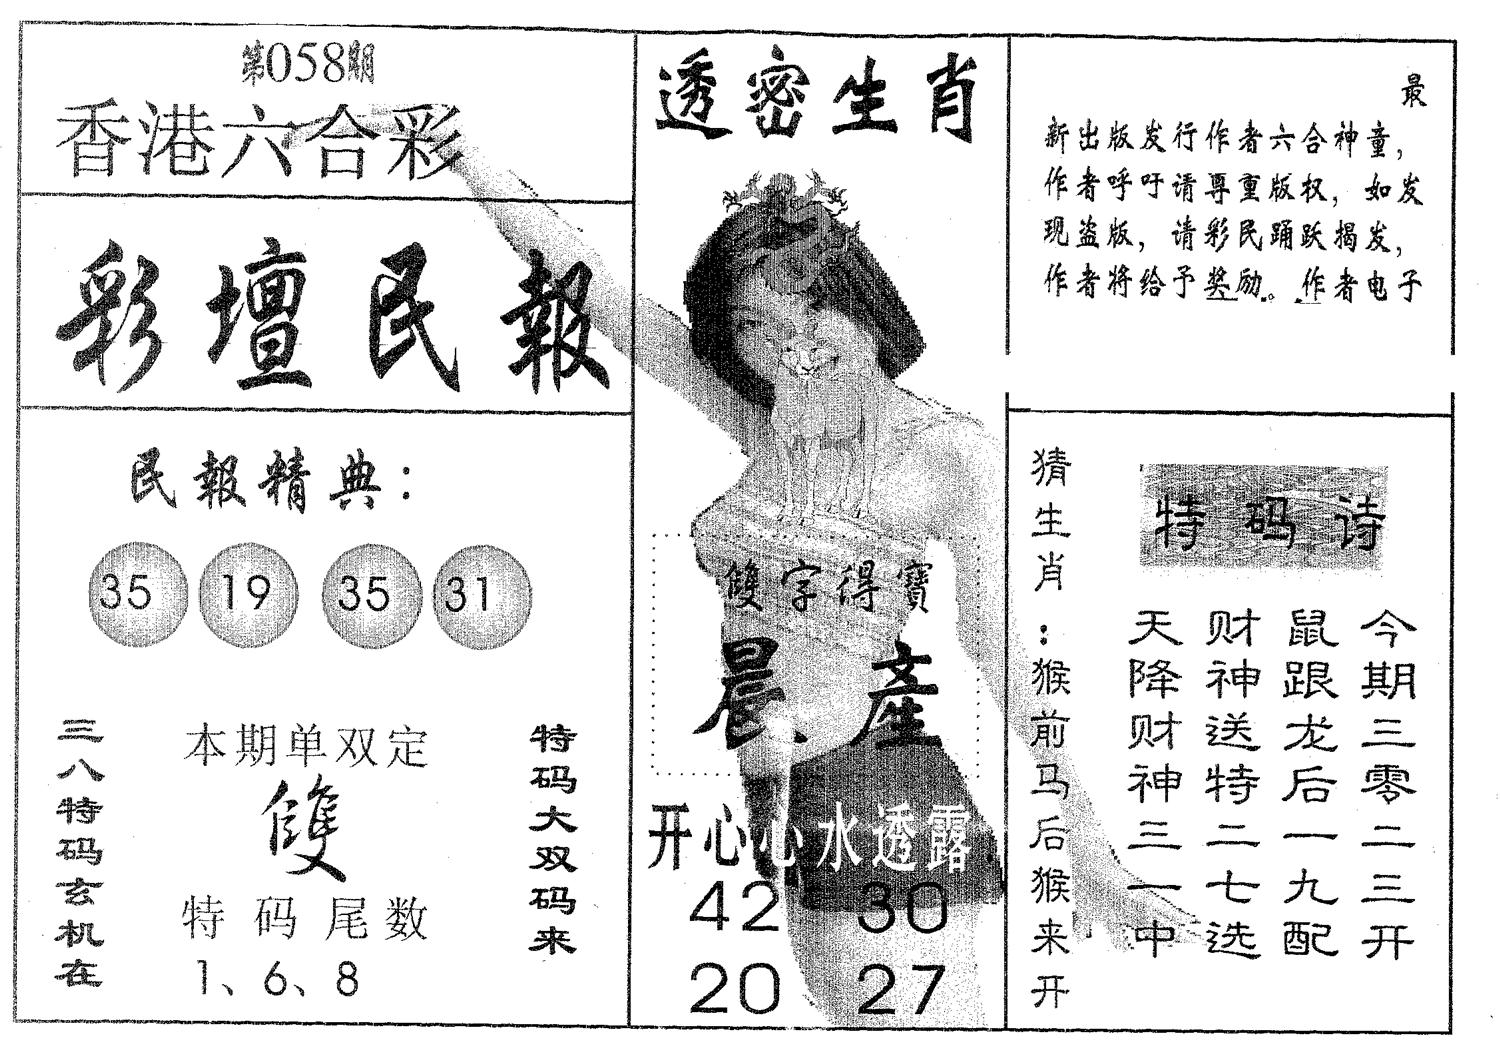 第058期
香港六合彩
彩壇民報
民報精典：
35 19 35 31
三八特码玄机在
本期单双定
雙
特码尾数
1、6、8
特码大双码来
透密生肖
雙字得寶
晨 產
开心心水透露
42 30
20 27
最
新出版发行作者六合神童，
作者呼吁请尊重版权，如发
现盗版，请彩民踊跃揭发，
作者将给予奖励。作者电子
猜生肖：猴前马后猴来开
特码诗
今期三零二三开
鼠跟龙后一九配
财神送特二七选
天降财神三一中